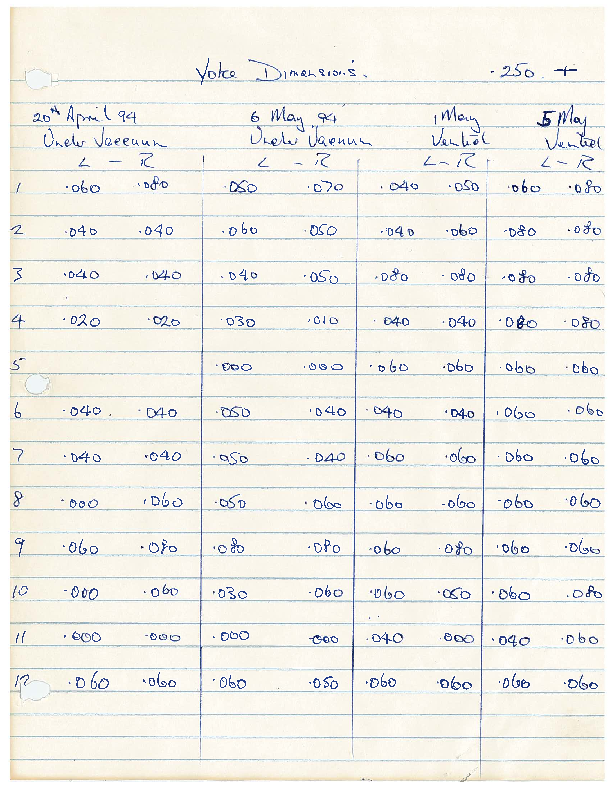 Yoke Dimensions. .250 +
20th April 94 6 May 94 1 May 5 May
Under Vacuum Under Vacuum Vented Vented
L - R L - R L - R L - R
1 .060 .080 .050 .070 .040 .050 .060 .080
2 .040 .040 .060 .050 .040 .060 .080 .080
3 .040 .040 .040 .050 .080 .080 .080 .080
4 .020 .020 .030 .010 .040 .040 .080 .080
5 .000 .000 .060 .060 .060 .060
6 .040 .040 .050 .040 .040 .040 .060 .060
7 .040 .040 .050 .040 .060 .060 .060 .060
8 .000 .060 .050 .060 .060 .060 .060 .060
9 .060 .080 .080 .080 .060 .080 .060 .060
10 .000 .060 .030 .060 .060 .050 .060 .080
11 .000 .000 .000 .000 .040 .000 .040 .060
12 .060 .060 .060 .050 .060 .060 .060 .060